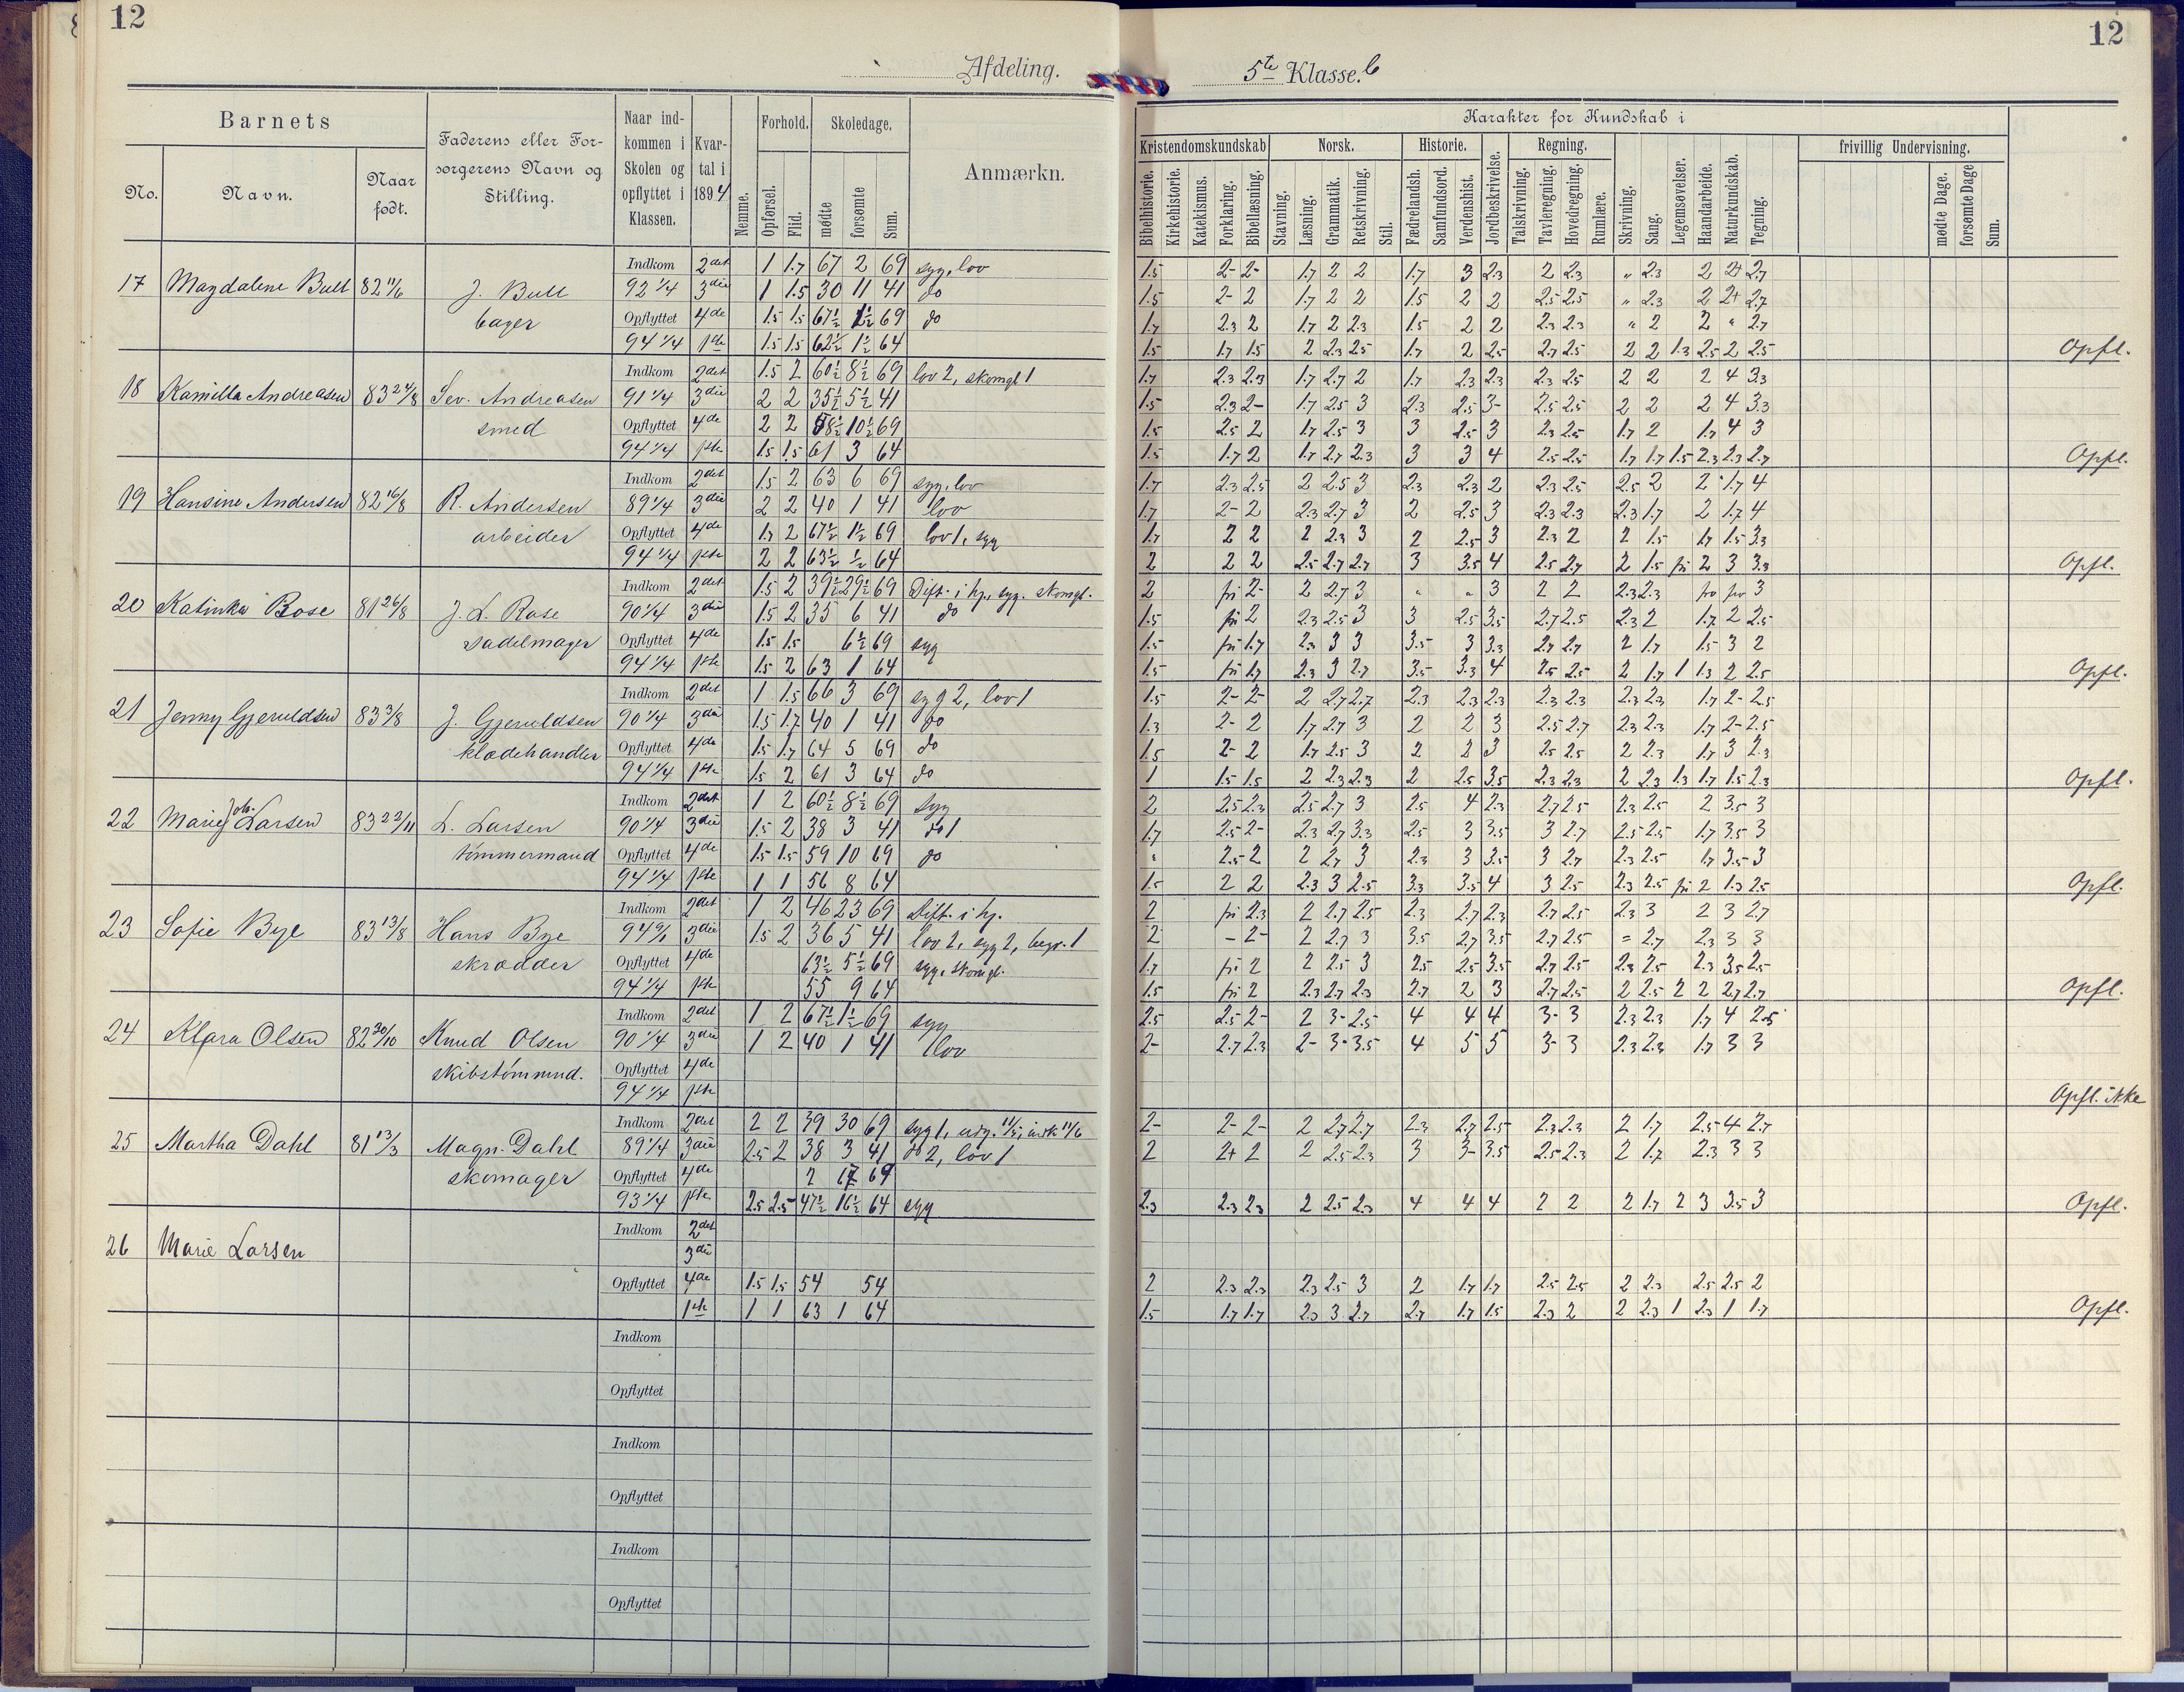 12
Afdeling.
Barnets
No.
Navn.
Naar født.
Faderens eller Forsorgerens Navn og Stilling.
Naar indkommen i Skolen og opflyttet i Klassen.
Kvartal i 1894
Nemme.
Forhold.
Opførsel.
Flid.
Skoledage.
mødte
forsømte
Sum.
Anmærkn.
17 Magdalene Bull 82 11/6 J. Bull Indkom 2det 1 1.7 67 2 69 syg, lov
bager 92 1/4 3die 1 1.5 30 11 41 do
Opflyttet 4de 1.5 1.5 67½ 1½ 69 do
94 1/4 1ste 1.5 1.5 62½ 1½ 64
18 Kamilla Andreasen 83 24/8 Sev. Andreasen Indkom 2det 1.5 2 60½ 8½ 69 lov 2, skomgl 1
smed 91 1/4 3die 2 2 35½ 5½ 41
Opflyttet 4de 2 2 58½ 10½ 69
94 1/4 1ste 1.5 1.5 61 3 64
19 Hansine Andersen 82 16/8 R. Andersen Indkom 2det 1.5 2 63 6 69 syg, lov
arbeider 89 1/4 3die 2 2 40 1 41 lov
Opflyttet 4de 1.7 2 67½ 1½ 69 lov 1, syg
94 1/4 1ste 2 2 63½ ½ 64
20 Katinka Bose 81 26/8 J. L. Rose Indkom 2det 1.5 2 39½ 29½ 69 Dift. i hj., syg. skomgl.
sadelmager 90 1/4 3die 1.5 2 35 6 41 do
Opflyttet 4de 1.5 1.5 6½ 69 syg
94 1/4 1ste 1.5 2 63 1 64
21 Jenny Gjeruldsen 83 3/8 J. Gjeruldsen Indkom 2det 1 1.5 66 3 69 syg 2, lov 1
klædehandler 90 1/4 3die 1.5 1.7 40 1 41 do
Opflyttet 4de 1.5 1.7 64 5 69 do
94 1/4 1ste 1.5 2 61 3 64 do
22 Marie Joh. Larsen 83 22/11 L. Larsen Indkom 2det 1 2 60½ 8½ 69 syg
tømmermand 90 1/4 3die 1.5 2 38 3 41 do 1
Opflyttet 4de 1.5 1.5 59 10 69 do
94 1/4 1ste 1 1 56 8 64
23 Sofie Bye 83 13/8 Hans Bye Indkom 2det 1 2 46 23 69 Dift. i hj.
skrædder 94 3die 1.5 2 36 5 41 lov 2, syg 2, begr. 1
Opflyttet 4de 63½ 5½ 69 syg, skomgl.
94 1/4 1ste 55 9 64
24 Klara Olsen 82 30/10 Knud Olsen Indkom 2det 1 2 67½ 1½ 69 syg
skibstømmmd. 90 1/4 3die 1 2 40 1 41 lov
Opflyttet 4de
94 1/4 1ste
25 Martha Dahl 81 13/3 Magn. Dahl Indkom 2det 2 2 39 30 69 syg 1,
skomager 89 1/4 3die 2.5 2 38 3 41 do 2, lov 1
Opflyttet 4de 2 67 69
93 1/4 1ste 2.5 2.5 47½ 16½ 64 syg
26 Marie Larsen Indkom 2det
3die
Opflyttet 4de 1.5 1.5 54 54
1ste 1 1 63 1 64
Indkom
Opflyttet
Indkom
Opflyttet
Indkom
Opflyttet
12
5te Klasse. b
Karakter for Kundskab i
Kristendomskundskab
Bibelhistorie.
Kirkehistorie.
Katekismus.
Forklaring.
Bibellæsning.
Norsk.
Stavning.
Læsning.
Grammatik.
Retskrivning.
Stil.
Historie.
Fædrelandsh.
Samfundsord.
Verdenshist.
Jordbeskrivelse.
Regning.
Talskrivning.
Tavleregning.
Hovedregning.
Rumlære.
Skrivning.
Sang.
Legemsøvelser.
Haandarbeide.
Naturkundskab.
Tegning.
frivillig Undervisning.
mødte Dage.
forsømte Dage
Sum.
1.5 2- 2- 1.7 2 2 1.7 3 2.3 2 2.3 " 2.3 2 2+ 2.7
1.5 2- 2 1.7 2 2 1.5 2 2 2.5 2.5 " 2.3 2 2+ 2.7
1.7 2.3 2 1.7 2 2.3 1.5 2 2 2.3 2.3 " 2 2 " 2.7
1.5 1.7 1.5 2 2.3 2.5 1.7 2 2.5 2.7 2.5 2 2 1.3 2.5 2 2.5 Opfl.
1.7 2.3 2.3 1.7 2.7 2 1.7 2.3 2.3 2.3 2.5 2 2 2 4 3.3
1.5 2.3 2- 1.7 2.5 3 2.3 2.5 3- 2.5 2.5 2 2 2 4 3.3
1.5 2.5 2 1.7 2.5 3 3 2.5 3 2.3 2.5 1.7 2 1.7 4 3
1.5 1.7 2 1.7 2.7 2.3 3 3 4 2.5 2.5 1.7 1.7 1.5 2.3 2.3 2.7 Opfl.
1.7 2.3 2.5 2 2.5 3 2.3 2.3 2 2.3 2.5 2.5 2 2 1.7 4
1.7 2- 2 2.3 2.7 3 2 2.5 3 2.3 2.3 2.3 1.7 2 1.7 4
1.7 2 2 2 2.3 3 2 2.5 3 2.3 2 2 1.5 1.7 1.5 3.3
2 2 2 2.5 2.7 2.7 3 3.5 4 2.5 2.7 2 1.5 fri 2 3 3.3 Opfl.
2 fri 2- 2 2.7 3 " " 3 2 2 2.3 2.3 3
1.5 fri 2 2.3 2.5 3 3 2.5 3.5 2.7 2.5 2.3 2 1.7 2 2.5
1.5 fri 1.7 2.3 3 3 3.5 3 3.3 2.7 2.7 2 1.7 1.5 3 2
1.5 fri 1.7 2.3 3 2.7 3.5 3.3 4 2.5 2.5 2 1.7 1 1.3 2 2.5 Opfl.
1.5 2- 2- 2 2.7 2.7 2.3 2.3 2.3 2.3 2.3 2.3 2.3 1.7 2- 2.5
1.3 2- 2 1.7 2.7 3 2 2 3 2.5 2.7 2.3 2.3 1.7 2- 2.5
1.5 2- 2 1.7 2.5 3 2 2 3 2.5 2.5 2 2.3 1.7 3 2.3
1 1.5 1.5 2 2.3 2.3 2 2.5 3.5 2.3 2.3 2 2.3 1.3 1.7 1.5 2.3 Opfl.
2 2.5 2.3 2.5 2.7 3 2.5 4 2.3 2.7 2.5 2.3 2.5 2 3.5 3
1.7 2.5 2- 2.3 2.7 3.3 2.5 3 3.5 3 2.7 2.5 2.5 1.7 3.5 3
" 2.5 2 2 2.7 3 2.3 3 3.5 3 2.7 2.3 2.5 1.7 3.5 3
1.5 2 2 2.3 3 2.5 3.3 3.5 4 3 2.5 2.3 2.5 fri 2 1.3 2.5 Opfl.
2 fri 2.3 2 2.7 2.5 2.3 2.7 2.3 2.7 2.5 2.3 3 2 3 2.7
2 - 2- 2 2.7 3 3.5 2.7 3.5 2.7 2.5 = 2.7 2.3 3 3
1.7 fri 2 2 2.5 3 2.5 2.5 3.5 2.7 2.5 2.3 2.5 2.3 3.5 2.5
1.5 fri 2 2.3 2.7 2.3 2.7 2 3 2.7 2.5 2 2.5 2 2 2.7 2.7 Opfl.
2.5 2.5 2- 2 3- 2.5 4 4 4 3- 3 2.3 2.3 1.7 4 2.5
2- 2.7 2.3 2- 3- 3.5 4 5 5 3- 3 2.3 2.3 1.7 3 3
Opfl. ikke
2- 2- 2- 2 2.7 2.7 2.3 2.7 2.5 2.3 2.3 2 1.7 2.5 4 2.7
2 2+ 2 2 2.5 2.3 3 3- 3.5 2.5 2.3 2 1.7 2.3 3 3
2.3 2.3 2.3 2 2.5 2.3 4 4 4 2 2 2 1.7 2 3 3.5 3 Opfl.
2 2.3 2.3 2.3 2.5 3 2 1.7 1.7 2.5 2.5 2 2.3 2.5 2.5 2
1.5 1.7 1.7 2.3 3 2.7 2.7 1.7 1.5 2.3 2 2 2.3 1 2.3 1 1.7 Opfl.